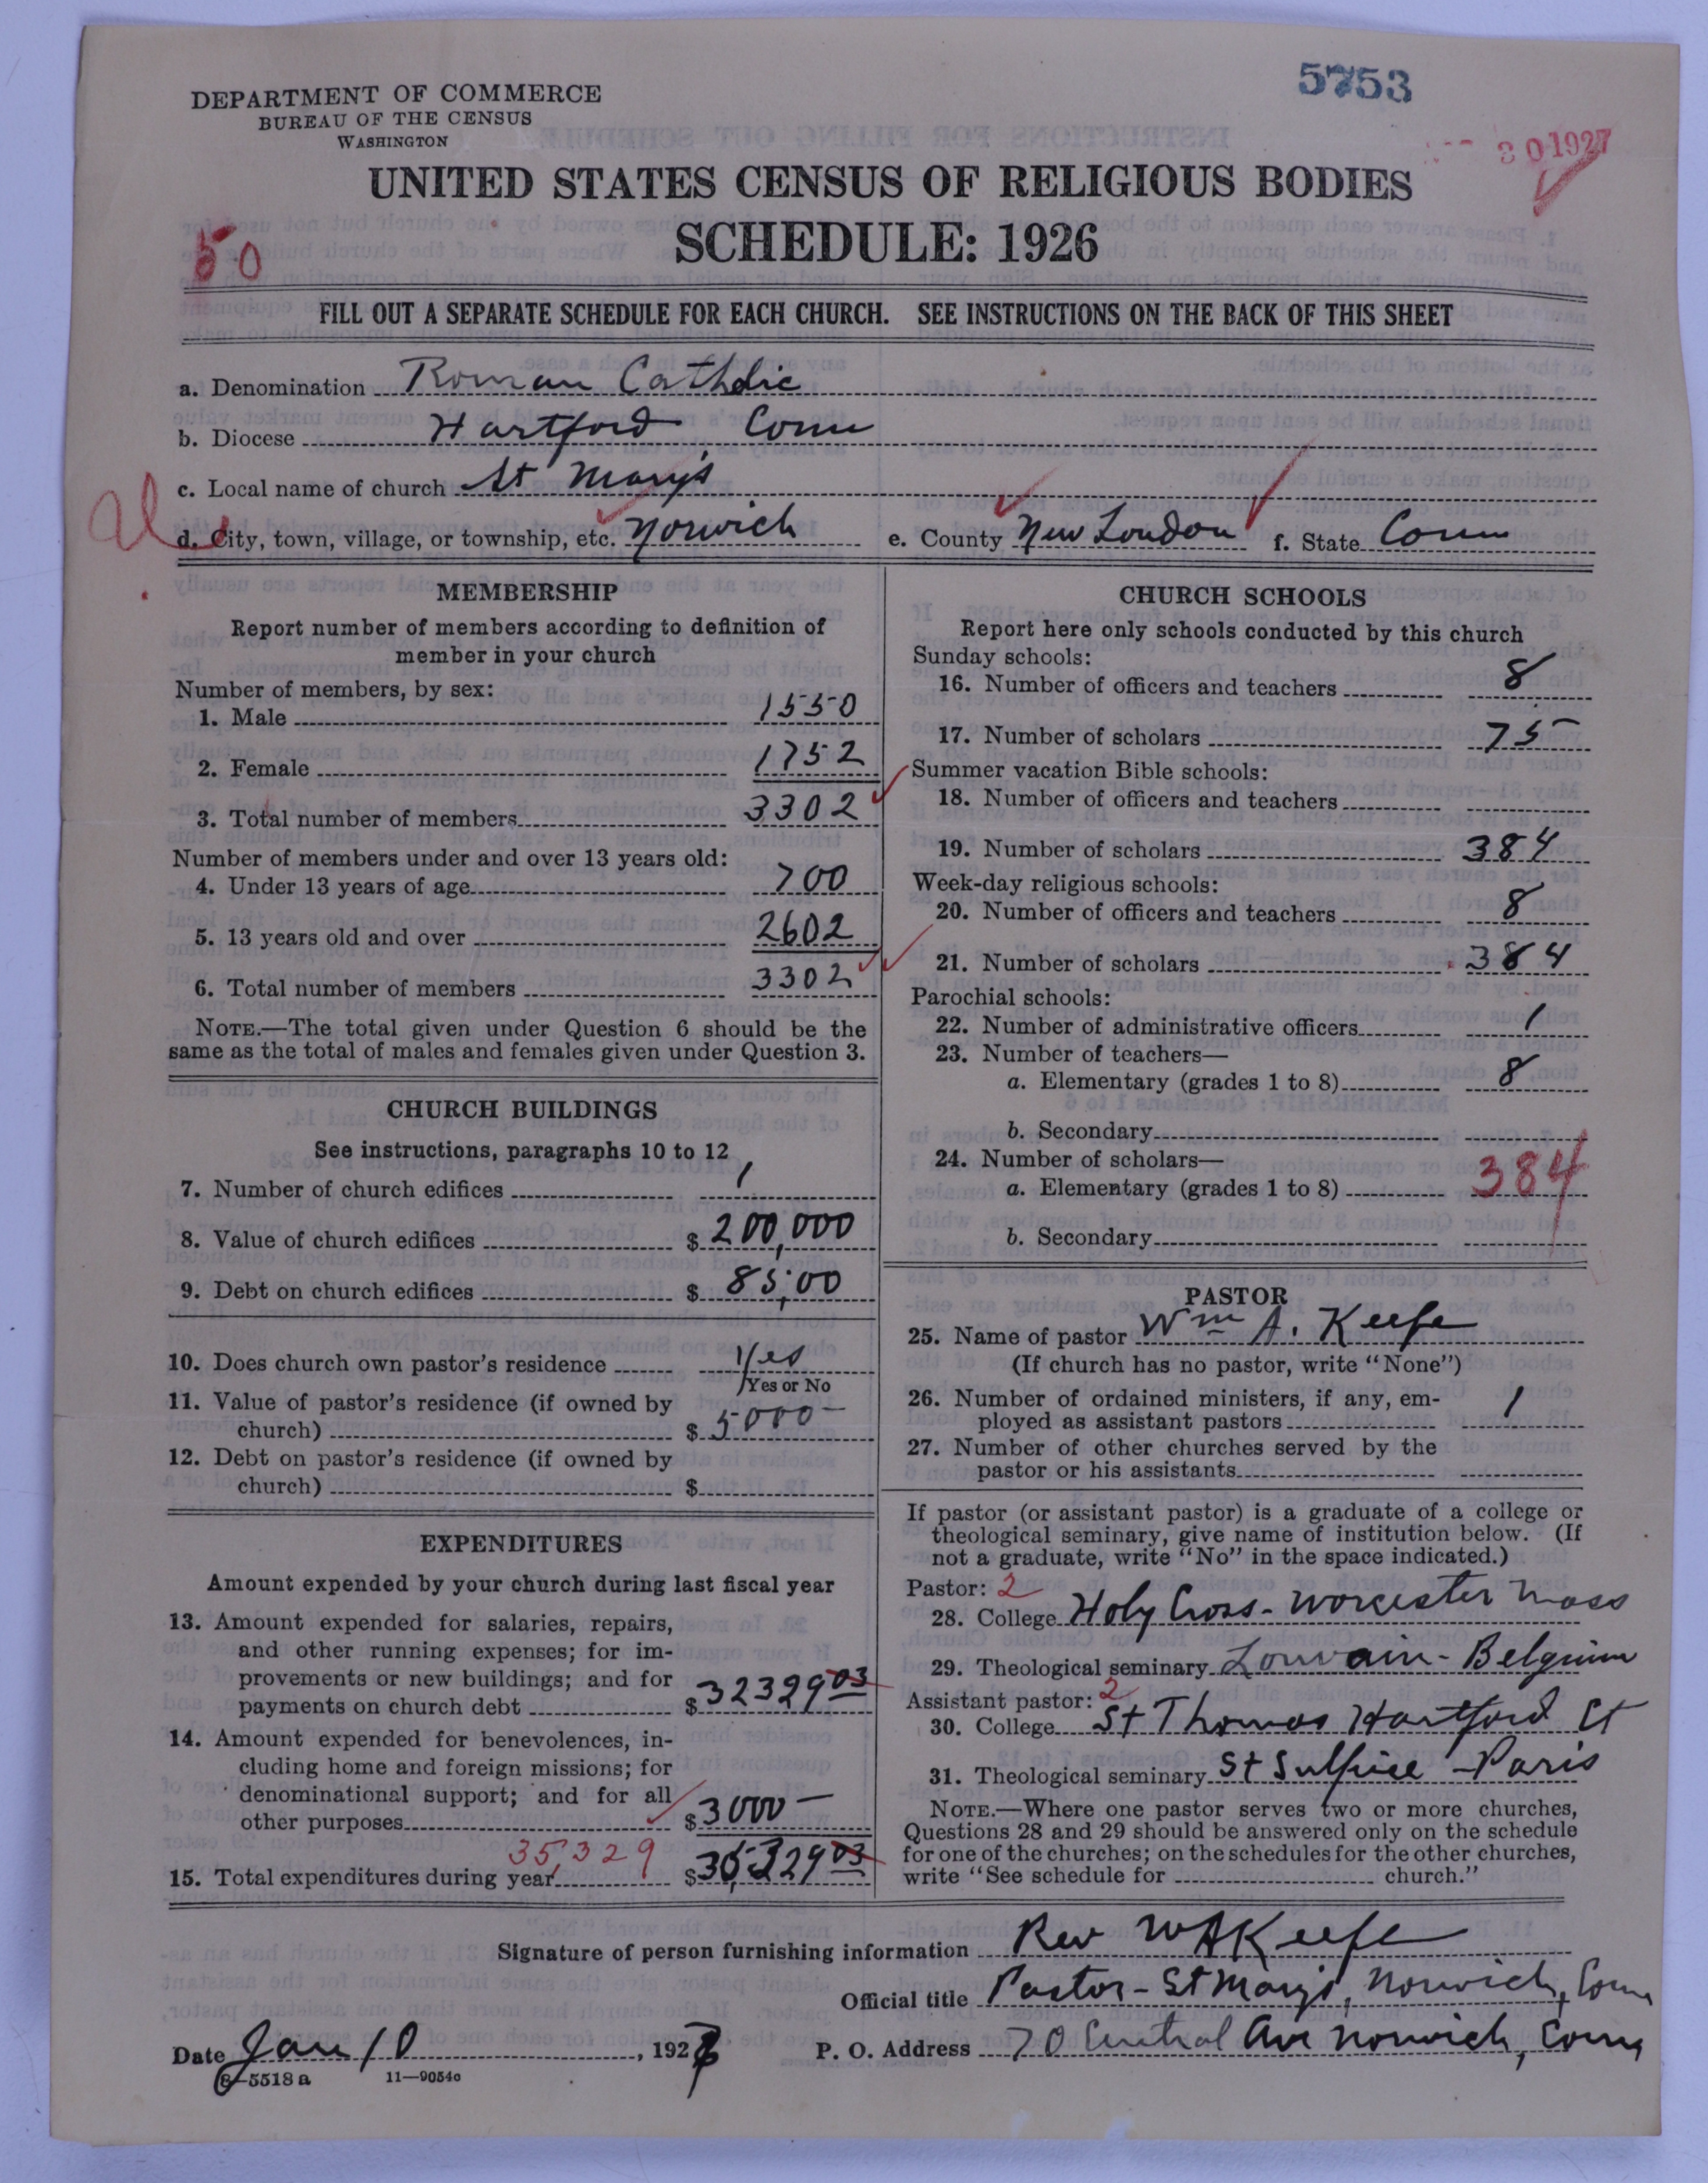 5753
DEPARTMENT OF COMMERCE
BUREAU OF THE CENSUS
WASHINGTON
30 1927
UNITED STATES CENSUS OF RELIGIOUS BODIES
SCHEDULE: 1926
50
FILL OUT A SEPARATE SCHEDULE FOR EACH CHURCH. SEE INSTRUCTIONS ON THE BACK OF THIS SHEET
a. Denomination Roman Catholic
b. Diocese Hartford Conn
c. Local name of church St Mary's
d. City, town, village, or township, etc. Norwich e. County New London f. State Conn
MEMBERSHIP
Report number of members according to definition of
member in your church
Number of members, by sex:
1. Male 1550
2. Female 1752
3. Total number of members 3302
Number of members under and over 13 years old:
4. Under 13 years of age 700
5. 13 years old and over 2602
6. Total number of members 3302
NOTE.—The total given under Question 6 should be the
same as the total of males and females given under Question 3.
CHURCH BUILDINGS
See instructions, paragraphs 10 to 12
7. Number of church edifices 1
8. Value of church edifices $ 200,000
9. Debt on church edifices $ 85,00
10. Does church own pastor's residence Yes
Yes or No
11. Value of pastor's residence (if owned by
church) $ 5000—
12. Debt on pastor's residence (if owned by
church) $
EXPENDITURES
Amount expended by your church during last fiscal year
13. Amount expended for salaries, repairs,
and other running expenses; for im-
provements or new buildings; and for
payments on church debt $ 32329 03
14. Amount expended for benevolences, in-
cluding home and foreign missions; for
denominational support; and for all
other purposes $ 3000—
35,329
15. Total expenditures during year $ 35,329 03
CHURCH SCHOOLS
Report here only schools conducted by this church
Sunday schools:
16. Number of officers and teachers 8
17. Number of scholars 75
Summer vacation Bible schools:
18. Number of officers and teachers
19. Number of scholars 384
Week-day religious schools:
20. Number of officers and teachers 8
21. Number of scholars 384
Parochial schools:
22. Number of administrative officers 1
23. Number of teachers—
a. Elementary (grades 1 to 8) 8
b. Secondary
24. Number of scholars—
a. Elementary (grades 1 to 8) 384
b. Secondary
PASTOR
25. Name of pastor Wm A. Keefe
(If church has no pastor, write "None")
26. Number of ordained ministers, if any, em-
ployed as assistant pastors 1
27. Number of other churches served by the
pastor or his assistants
If pastor (or assistant pastor) is a graduate of a college or
theological seminary, give name of institution below. (If
not a graduate, write "No" in the space indicated.)
Pastor: 2
28. College Holy Cross - Worcester Mass
29. Theological seminary Louvain - Belgium
Assistant pastor: 2
30. College St Thomas Hartford Ct
31. Theological seminary St Sulpice - Paris
NOTE.—Where one pastor serves two or more churches,
Questions 28 and 29 should be answered only on the schedule
for one of the churches; on the schedules for the other churches,
write "See schedule for church."
Signature of person furnishing information Rev WA Keefe
Official title Pastor - St Mary's, Norwich, Conn
Date Jan 10, 1927 P. O. Address 70 Central Ave Norwich, Conn
8—5518 a 11—9054c